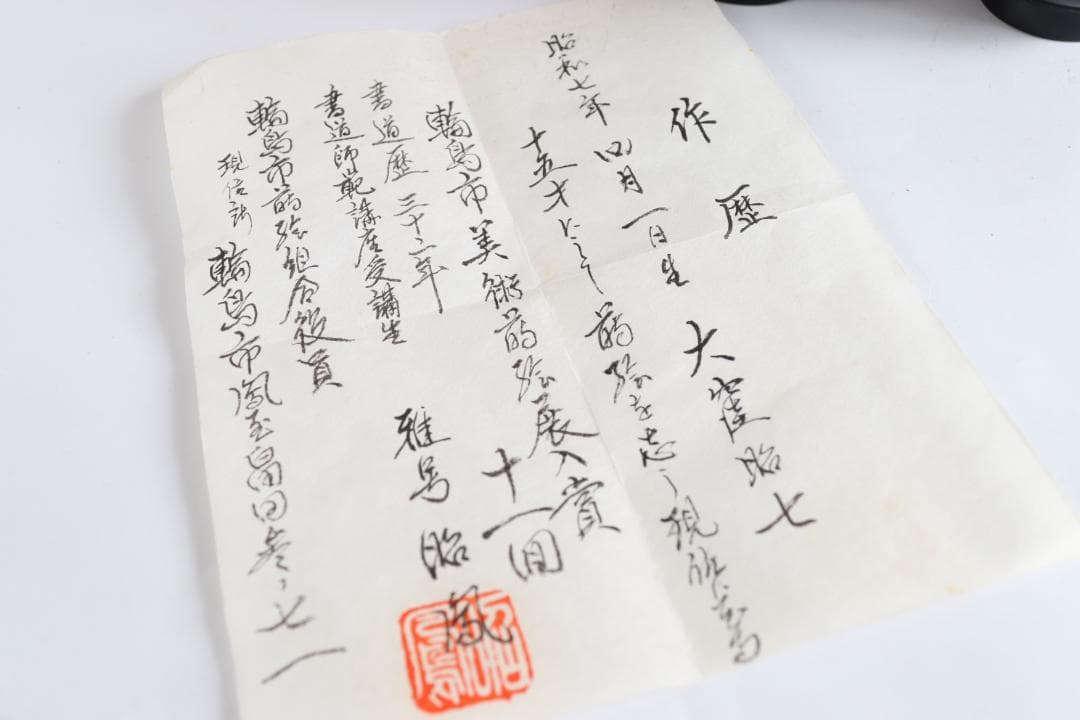 作歴
昭和七年四月一日生 大窪昭七
十五才にして蒔絵を志し現作
輪島市美術蒔絵展入賞
十一回
書道歴三十二年
雅号 昭鳳
書道師範講座受講生
輪島市蒔絵組合役員
現住所 輪島市鳳至畠田
昭鳳